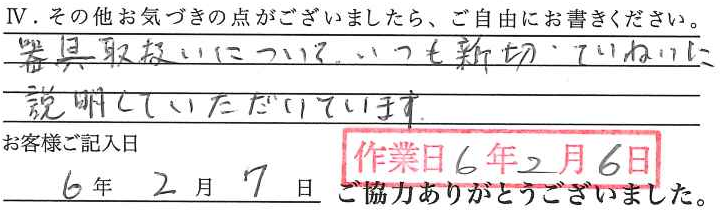 Ⅳ．その他お気づきの点がございましたら、ご自由にお書きください。
器具取扱いについて、いつも新切・ていねいに
説明していただいています。
お客様ご記入日
作業日 6年2月6日
6年 2月 7日
ご協力ありがとうございました。